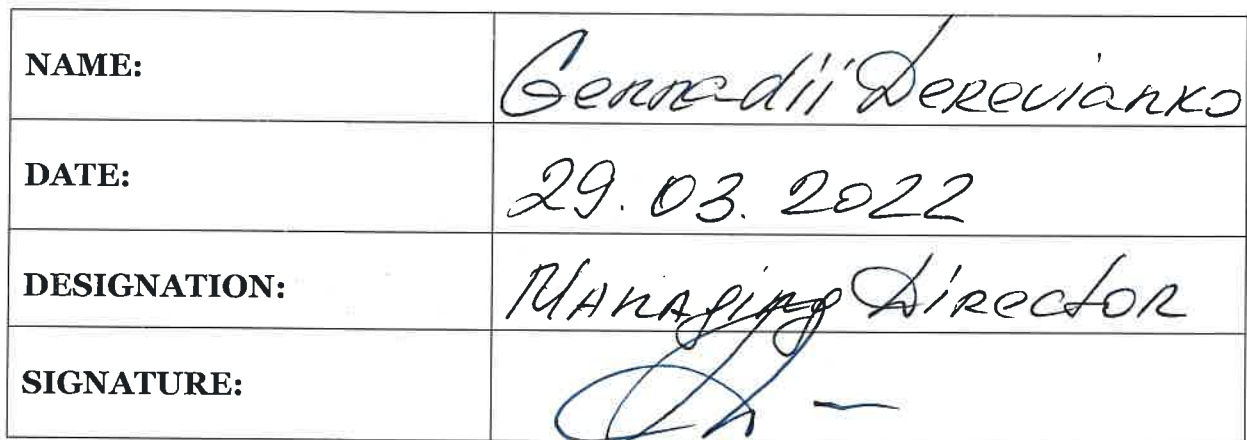 NAME: Gennadii Derevianko
DATE: 29.03.2022
DESIGNATION: Managing Director
SIGNATURE: